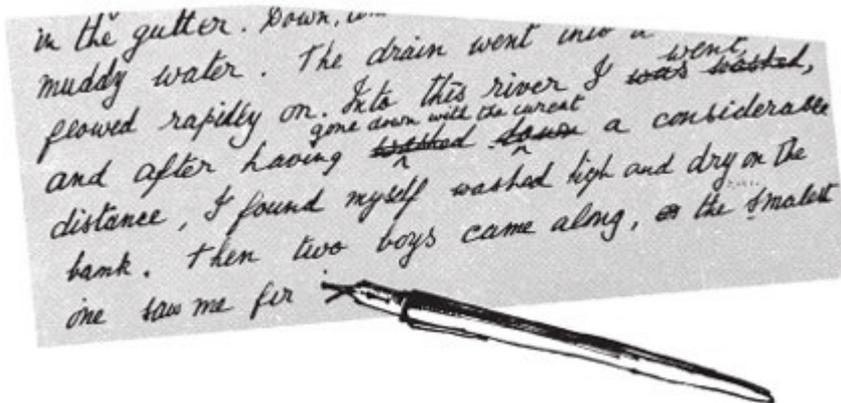 in the gutter. Down,
muddy water. The drain went into a
went
flowed rapidly on. Into this river I was washed,
gone down with the curent
and after having washed down a considerable
distance, I found myself washed high and dry on the
bank. Then two boys came along, the smalest
one saw me fir